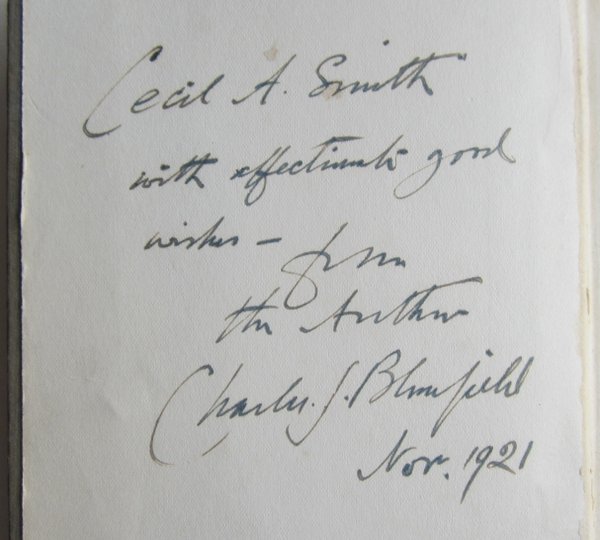 Cecil A. Smith
with affectionate good
wishes — from
the Author
Charles J. Blomfield
Nov. 1921